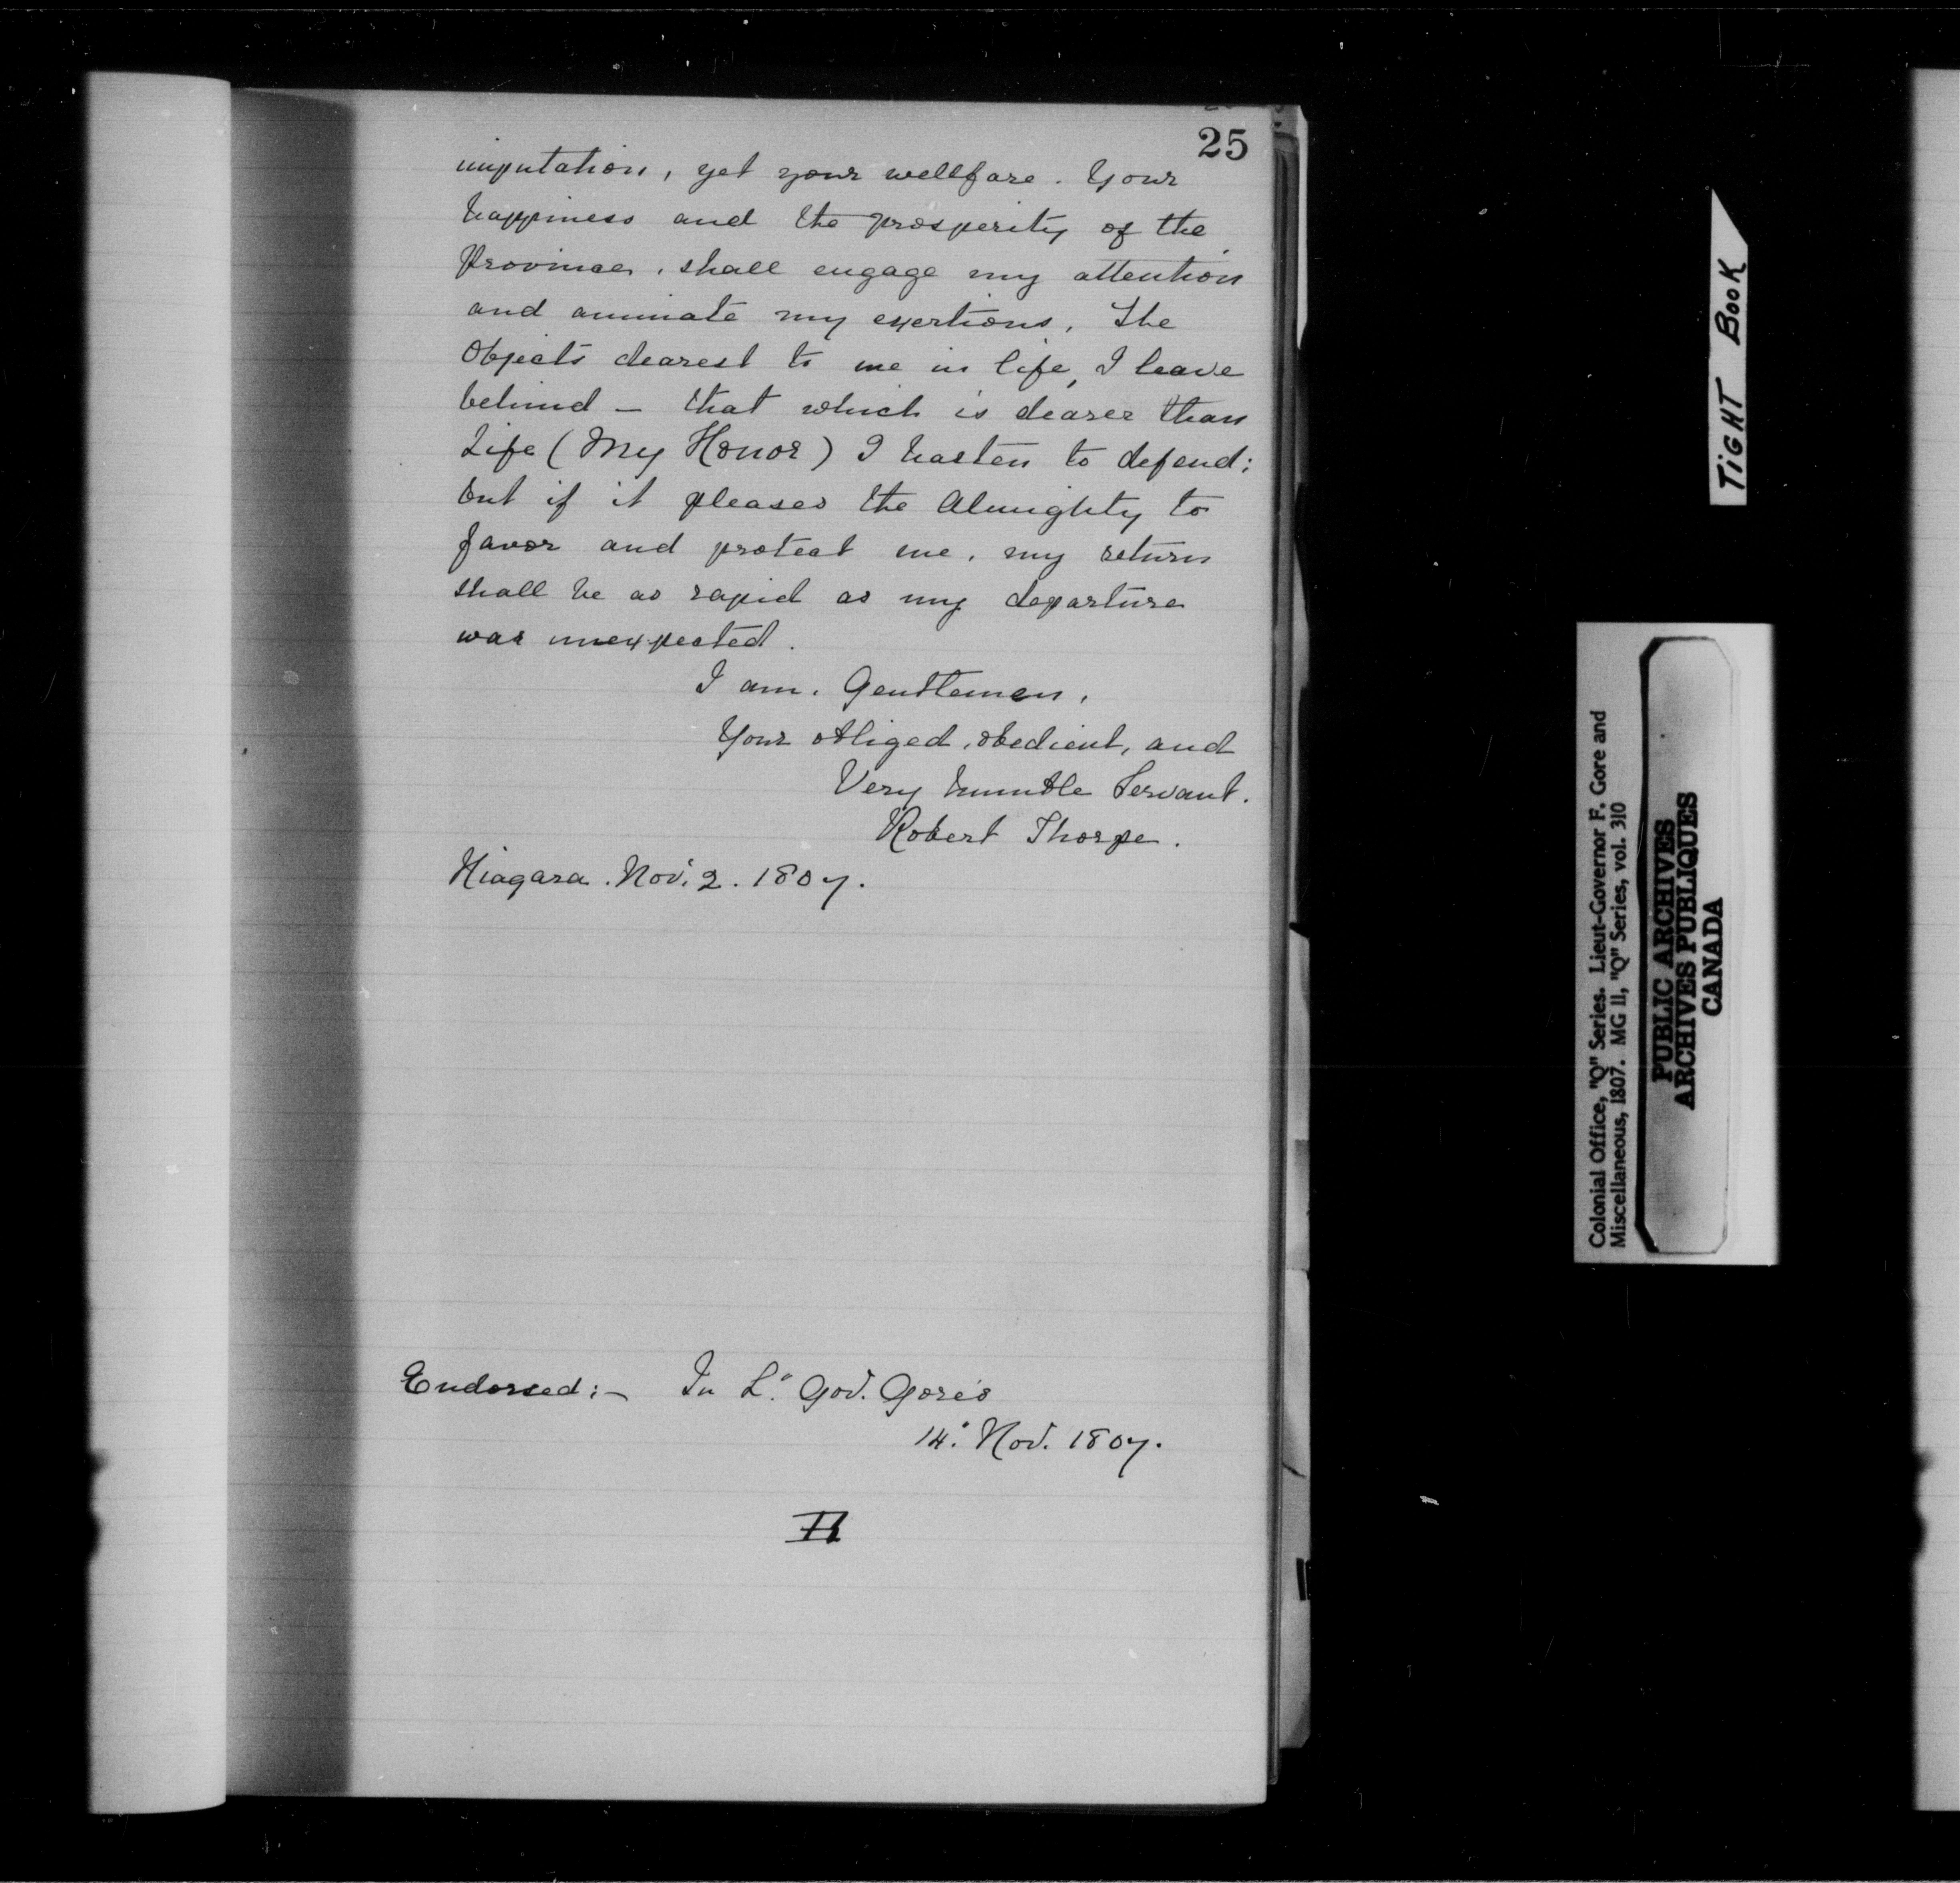 25
imputation, yet your wellfare. Your
happiness and the prosperity of the
Province, shall engage my attention
and animate my exertions. The
Objects dearest to me in life, I leave
behind - that which is dearer than
Life (My Honor) I hasten to defend;
but if it pleases the Almighty to
favor and protect me, my return
shall be as rapid as my departure
was unexpected.
I am, Gentlemen,
Your obliged, obedient, and
Very humble Servant.
Robert Thorpe.
Niagara. Nov. 2. 1807.
Endorsed:- In Lt. Gov. Gore's
14. Nov. 1807.
TIGHT BOOK
Colonial Office, "Q" Series. Lieut-Governor F. Gore and
Miscellaneous, 1807. MG 11, "Q" Series, vol. 310
PUBLIC ARCHIVES
ARCHIVES PUBLIQUES
CANADA